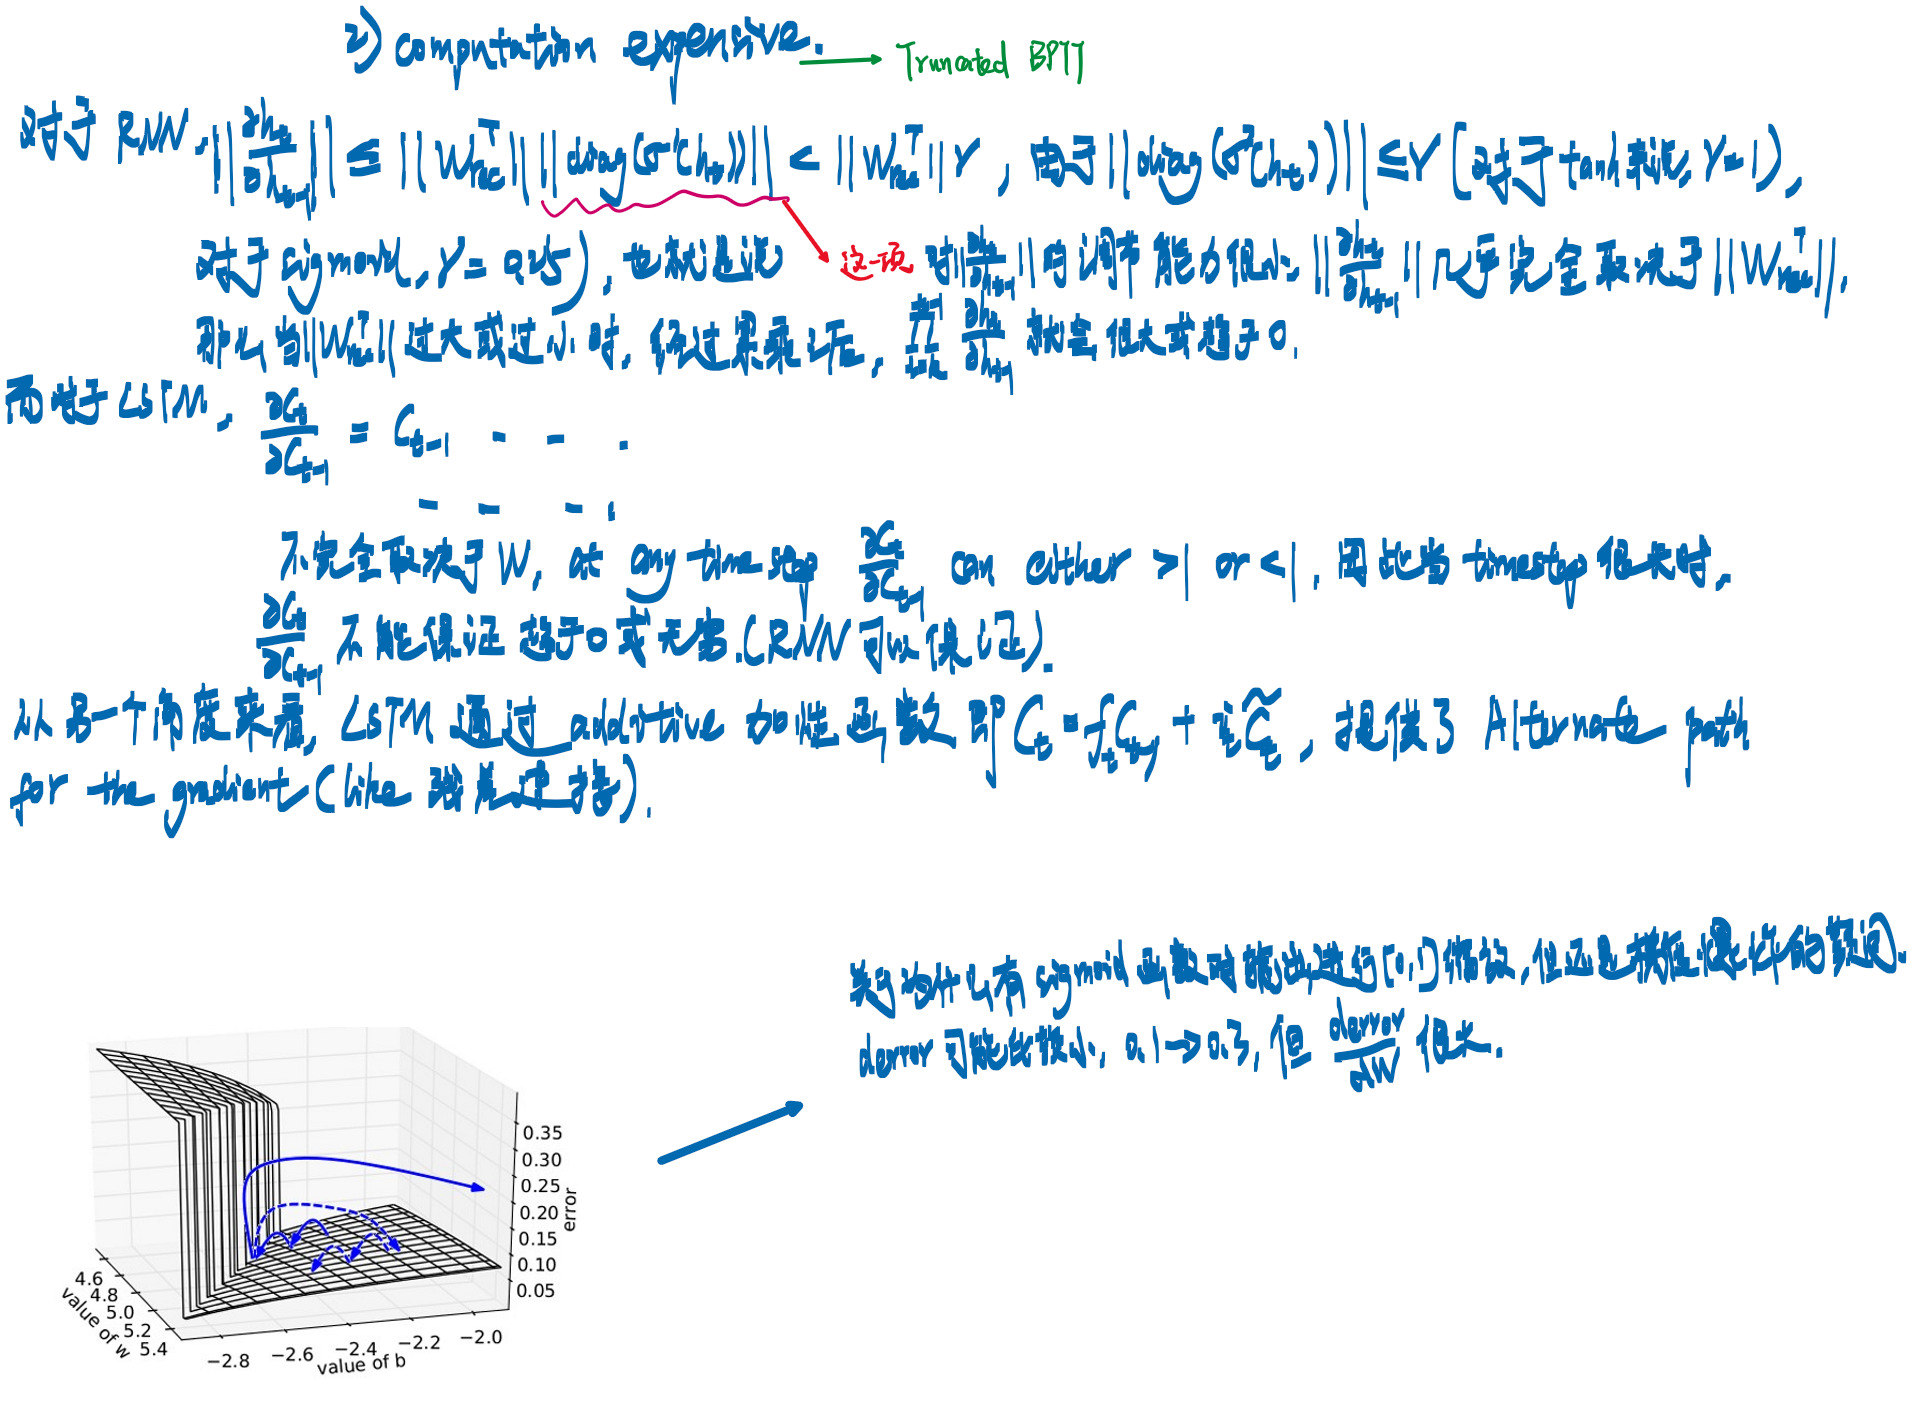 2) computation expensive. → Truncated BPTT
对于 RNN, ||∂h_t/∂h_{t-1}|| ≤ ||W_rec^T|| ||diag(σ'(h_t))|| < ||W_rec^T|| γ , 由于 ||diag(σ'(h_t))|| ≤ γ (对于 tanh 来说, γ=1),
对于 sigmoid, γ = 0.25), 也就是说 这一项 对||∂h_t/∂h_{t-1}||的调节能力很小, ||∂h_t/∂h_{t-1}|| 几乎完全取决于||W_rec^T||,
那么当||W_rec^T||过大或过小时, 经过累乘后, ∏ ∂h_t/∂h_{t-1} 就会很大或趋于0.
而对于 LSTM, ∂C_t/∂C_{t-1} = C_{t-1} - - .
- - - .
不完全取决于 W, at any time step ∂C_t/∂C_{t-1} can either >1 or <1. 因此当 timestep 很大时,
∂C_t/∂C_{t-1} 不能保证趋于0或无穷.(RNN可以保证).
从另一个角度来看, LSTM 通过 additive 加性函数 即 C_t = f_t C_{t-1} + i_t C̃_t , 提供了 Alternate path
for the gradient (like 残差连接).
关于为什么有 sigmoid 函数对输出进行[0,1]缩放, 但还是梯度爆炸的疑问.
derror 可能比较小, 0.1→0.3, 但 derror/dW 很大.
0.35
0.30
0.25
0.20
0.15
0.10
0.05
error
4.6
4.8
5.0
5.2
5.4
value of w
−2.8
−2.6
−2.4
−2.2
−2.0
value of b